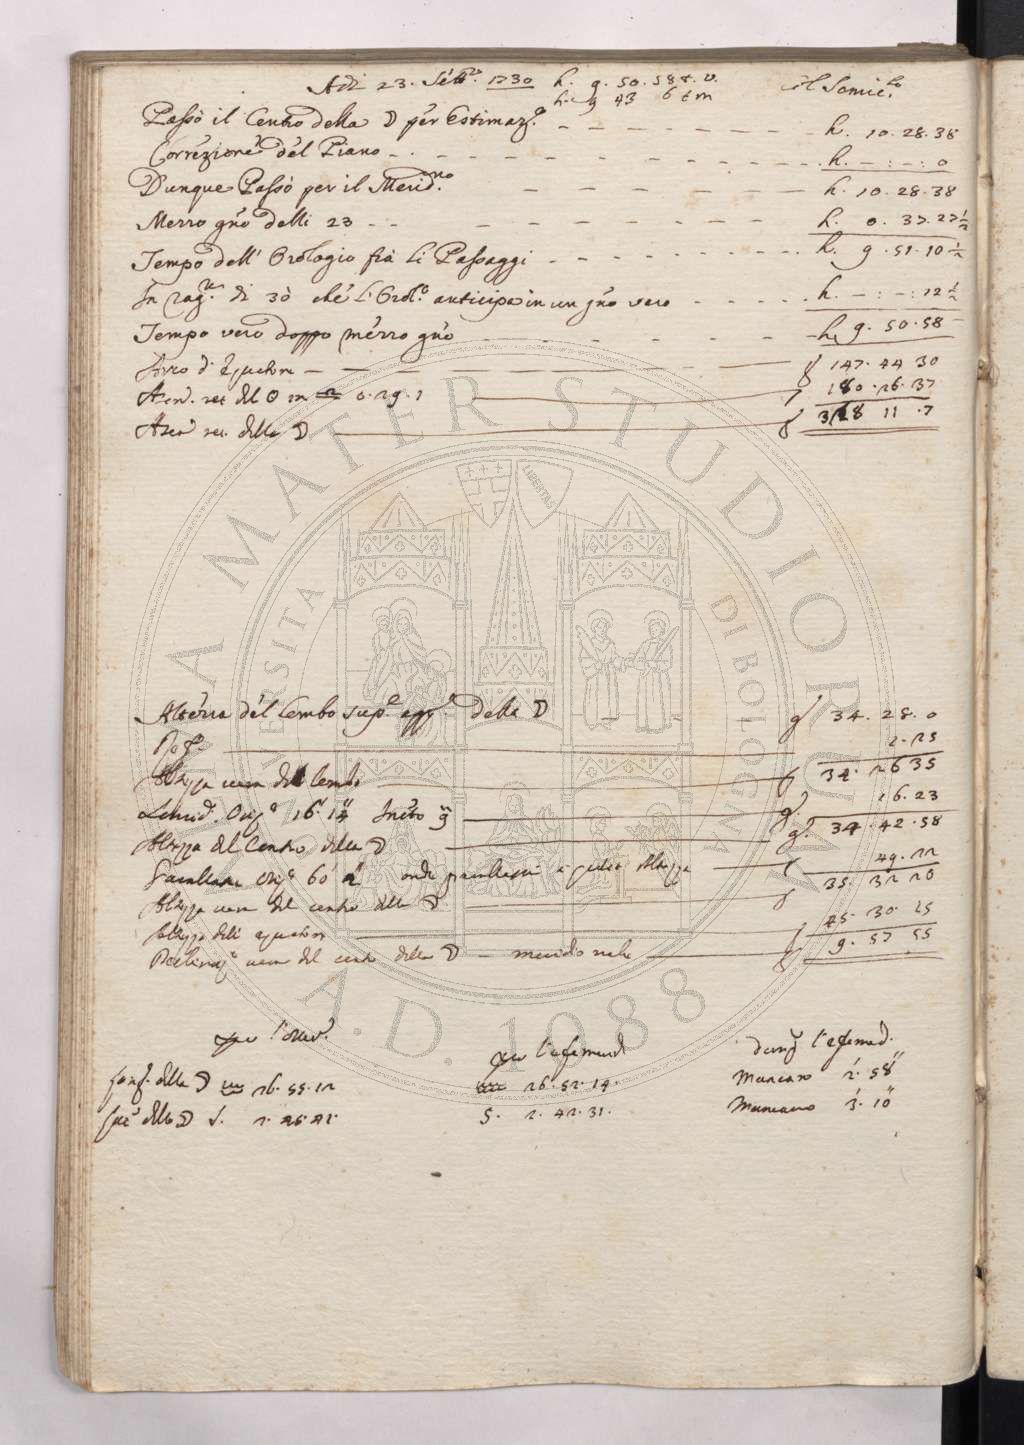 Adi 23. Sett.e 1730 h. 9. 50. 58 t. v. Al Semic.lo
h. 9 43 6 t m
Passò il Centro della ☽ per Estimaz.e h. 10. 28. 38
Correzione del Piano h. — : — : 0
Dunque Passò per il Merid.no h. 10. 28. 38
Mezzo gno delli 23 h. 0. 37. 27 ½
Tempo dell' Orologio frà li Passaggi h. 9. 51. 10 ½
In rag.e di 30 che l'Orol.o anticipa in un gno vero h. — : — : 12 ½
Tempo vero doppo mezzo gno h. 9. 50. 58
Arco d' Equatore g 147. 44 30
Ascen. ret. del ☉ in ♎ 0. 29. 1 180. 26. 37
Ascen. ret. della ☽ g 328 11. 7
Altezza del Lembo sup.e app.e della ☽ g 34. 28. 0
Ref.e 1. 25
Altezza vera del lembo g 34. 26 35
Semid. Oriz.e 16' 14'' 16. 23
Altezza del Centro della ☽ g. 34. 42. 58
Parallasse Oriz.e 60' onde parallasse à questa Altezza 49. 22
Altezza vera del centro della ☽ g 35. 32 20
Altezza dell' equatore 45. 30. 15
Declinaz.e vera del centro della ☽ meridionale g 9. 57 55
per l'osserv. per l'efemerid. dunq. l'efemerid.
Long. della ☽ ♒ 26. 55. 12 ♒ 26. 52. 14. Mancano 2' 58''
Lat. della ☽ S. 2. 45. 41. S. 2. 42. 31. Mancano 3' 10''
ALMA MATER STUDIORUM
UNIVERSITÀ DI BOLOGNA
LIBERTAS
A.D. 1088